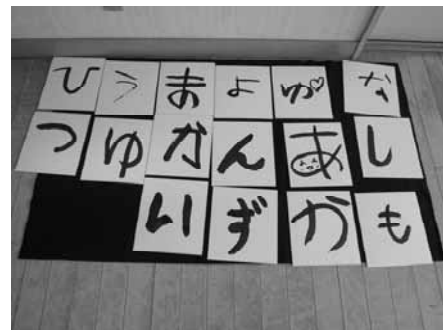 ひうまよゆ♡な
つゆかんあし
いずかも